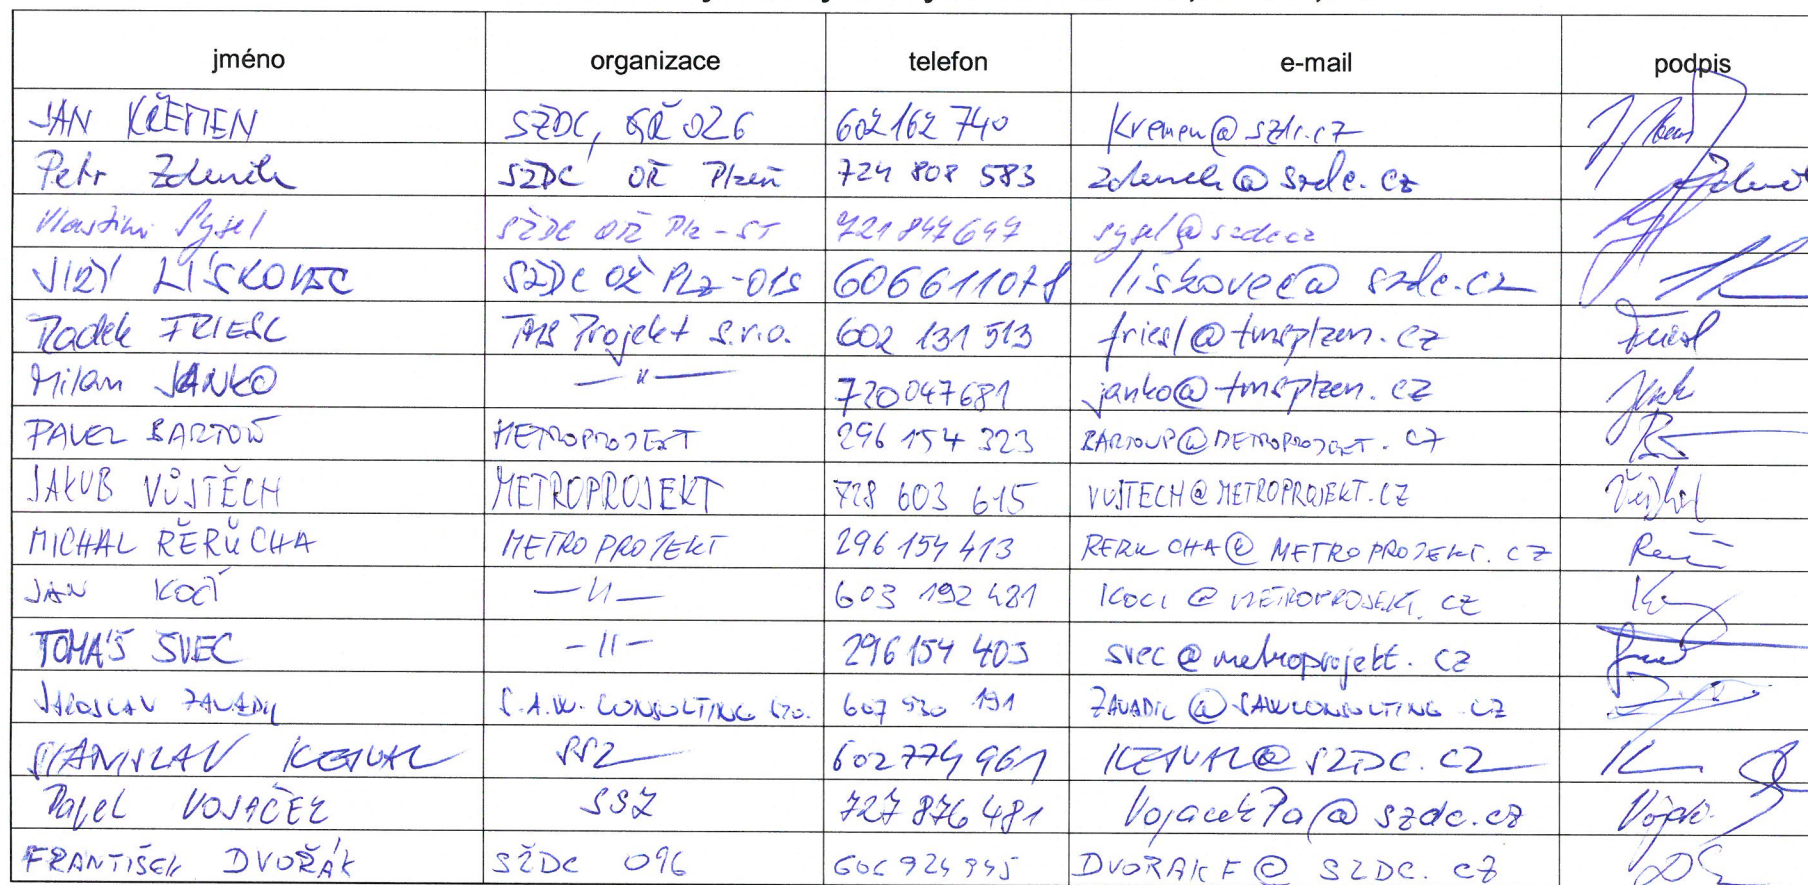 jméno organizace telefon e-mail podpis
JAN KŘEMEN SŽDC, GŘ O26 602 162 740 Kremen@szdc.cz
Petr Zdeněk SŽDC OŘ Plzeň 724 808 583 zdenek@szdc.cz
Vlastimil Sysel SŽDC OŘ Plz-ST 721 847 647 sysel@szdc.cz
JIŘÍ LÍSKOVEC SŽDC OŘ PLZ-O1S 606611078 liskovec@szdc.cz
Radek FRIESL TMS Projekt s.r.o. 602 131 513 friesl@tmsplzen.cz
Milan JANKO — 〃 — 720047681 janko@tmsplzen.cz
PAVEL BARTOŇ METROPROJEKT 296 154 323 BARTONP@METROPROJEKT.CZ
JAKUB VŮJTĚCH METROPROJEKT 728 603 615 VUJTECH@METROPROJEKT.CZ
MICHAL ŘĚRŮCHA METROPROJEKT 296 154 413 RERUCHA@METROPROJEKT.CZ
JAN KOČÍ — 11 — 603 192 481 KOCI@METROPROJEKT.CZ
TOMÁŠ SVEC - 11 - 296 154 403 svec@metroprojekt.cz
JAROSLAV ZAVADIL S.A.W. CONSULTING s.r.o. 607 930 191 ZAVADIL@SAWCONSULTING.CZ
STANISLAV KEJVAL SSZ 602 774 961 KEJVAL@SZDC.CZ
Pavel VOJAČEK SSZ 727 876 481 VojacekPa@szdc.cz
FRANTIŠEK DVOŘÁK SŽDC O96 DVORAKF@SZDC.CZ